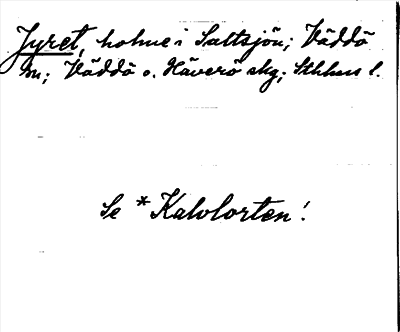 Fyret, holme i Saltsjön; Väddö
sn; Väddö o. Häverö skg; Sthlms l.
Se * Kalvlorten!